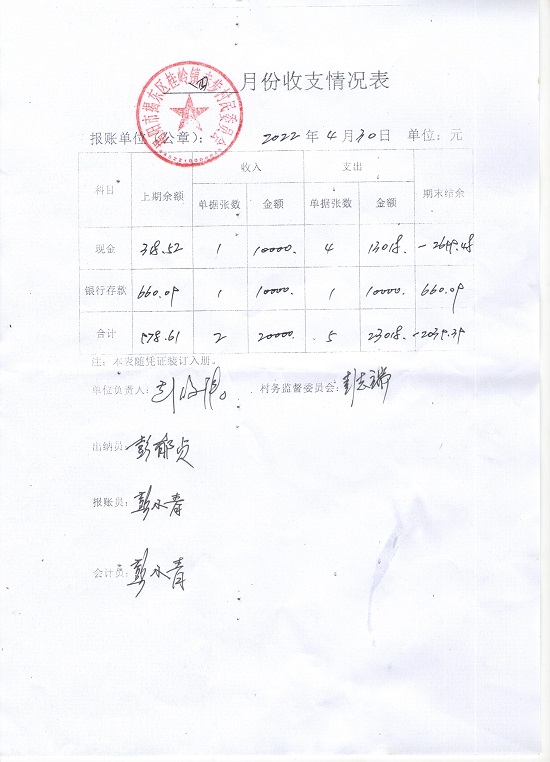 四 月份收支情况表
报账单位(公章): 2022 年 4 月 30 日 单位:元
科目 上期余额 收入 支出 期末结余
单据张数 金额 单据张数 金额
现金 318.52 1 10000. 4 13018. -2699.48
银行存款 660.09 1 10000. 1 10000. 660.09
合计 978.61 2 20000. 5 23018. -2039.39
注:本表随凭证装订入册。
单位负责人: 村务监督委员会:
出纳员: 彭郁贞
报账员: 彭永青
会计员: 彭永青